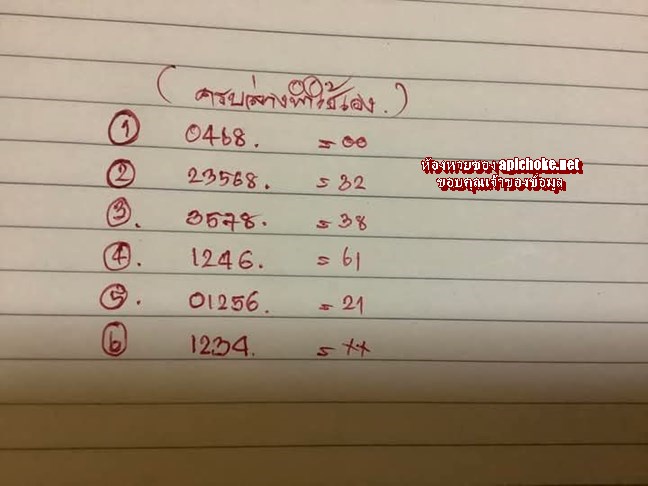 (ครบล่าง ใช้เอง.)
① 0468. = 00
② 23568. = 32
③. 3578. = 38
④. 1246. = 61
⑤. 01256. = 21
⑥ 1234. = ××
ห้องหวยของ apichoke.net
ขอบคุณเจ้าของข้อมูล